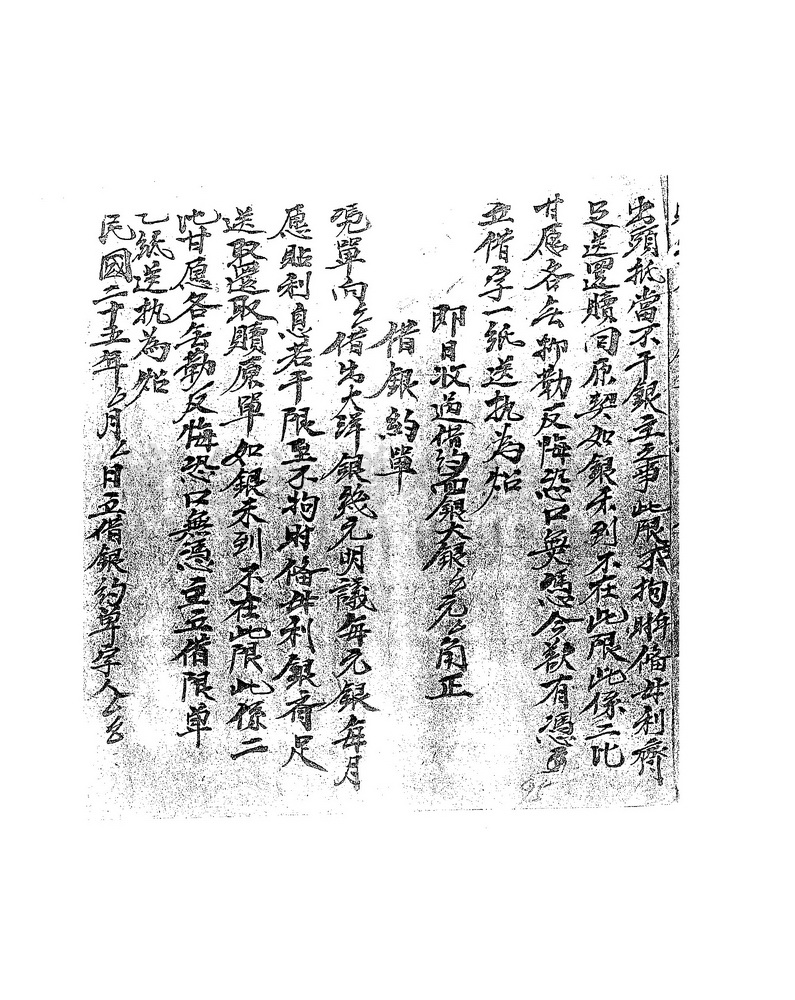 出頭抵當不干銀主之事此限不拘時俻母利齊
足送還贖回原契如銀未到不在此限此係二比
甘愿各无抑勒反悔恐口無憑今欲有憑
立借字一紙送执為炤
即日收过借約面銀大銀厶元厶角正
借銀約單
凴單向厶借出大洋銀幾元明議每元銀每月
愿貼利息若干限至不拘時俻母利銀齊足
送取還取贖原單如銀未到不在此限此係二
比甘愿各無勒反悔恐口無憑立立借限单
乙紙送执為炤
民國二十五年厶月厶日立借銀約單字人厶厶